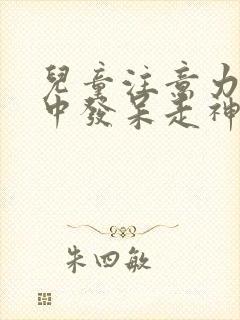 兒童注意力
中發呆走神
朱四敏